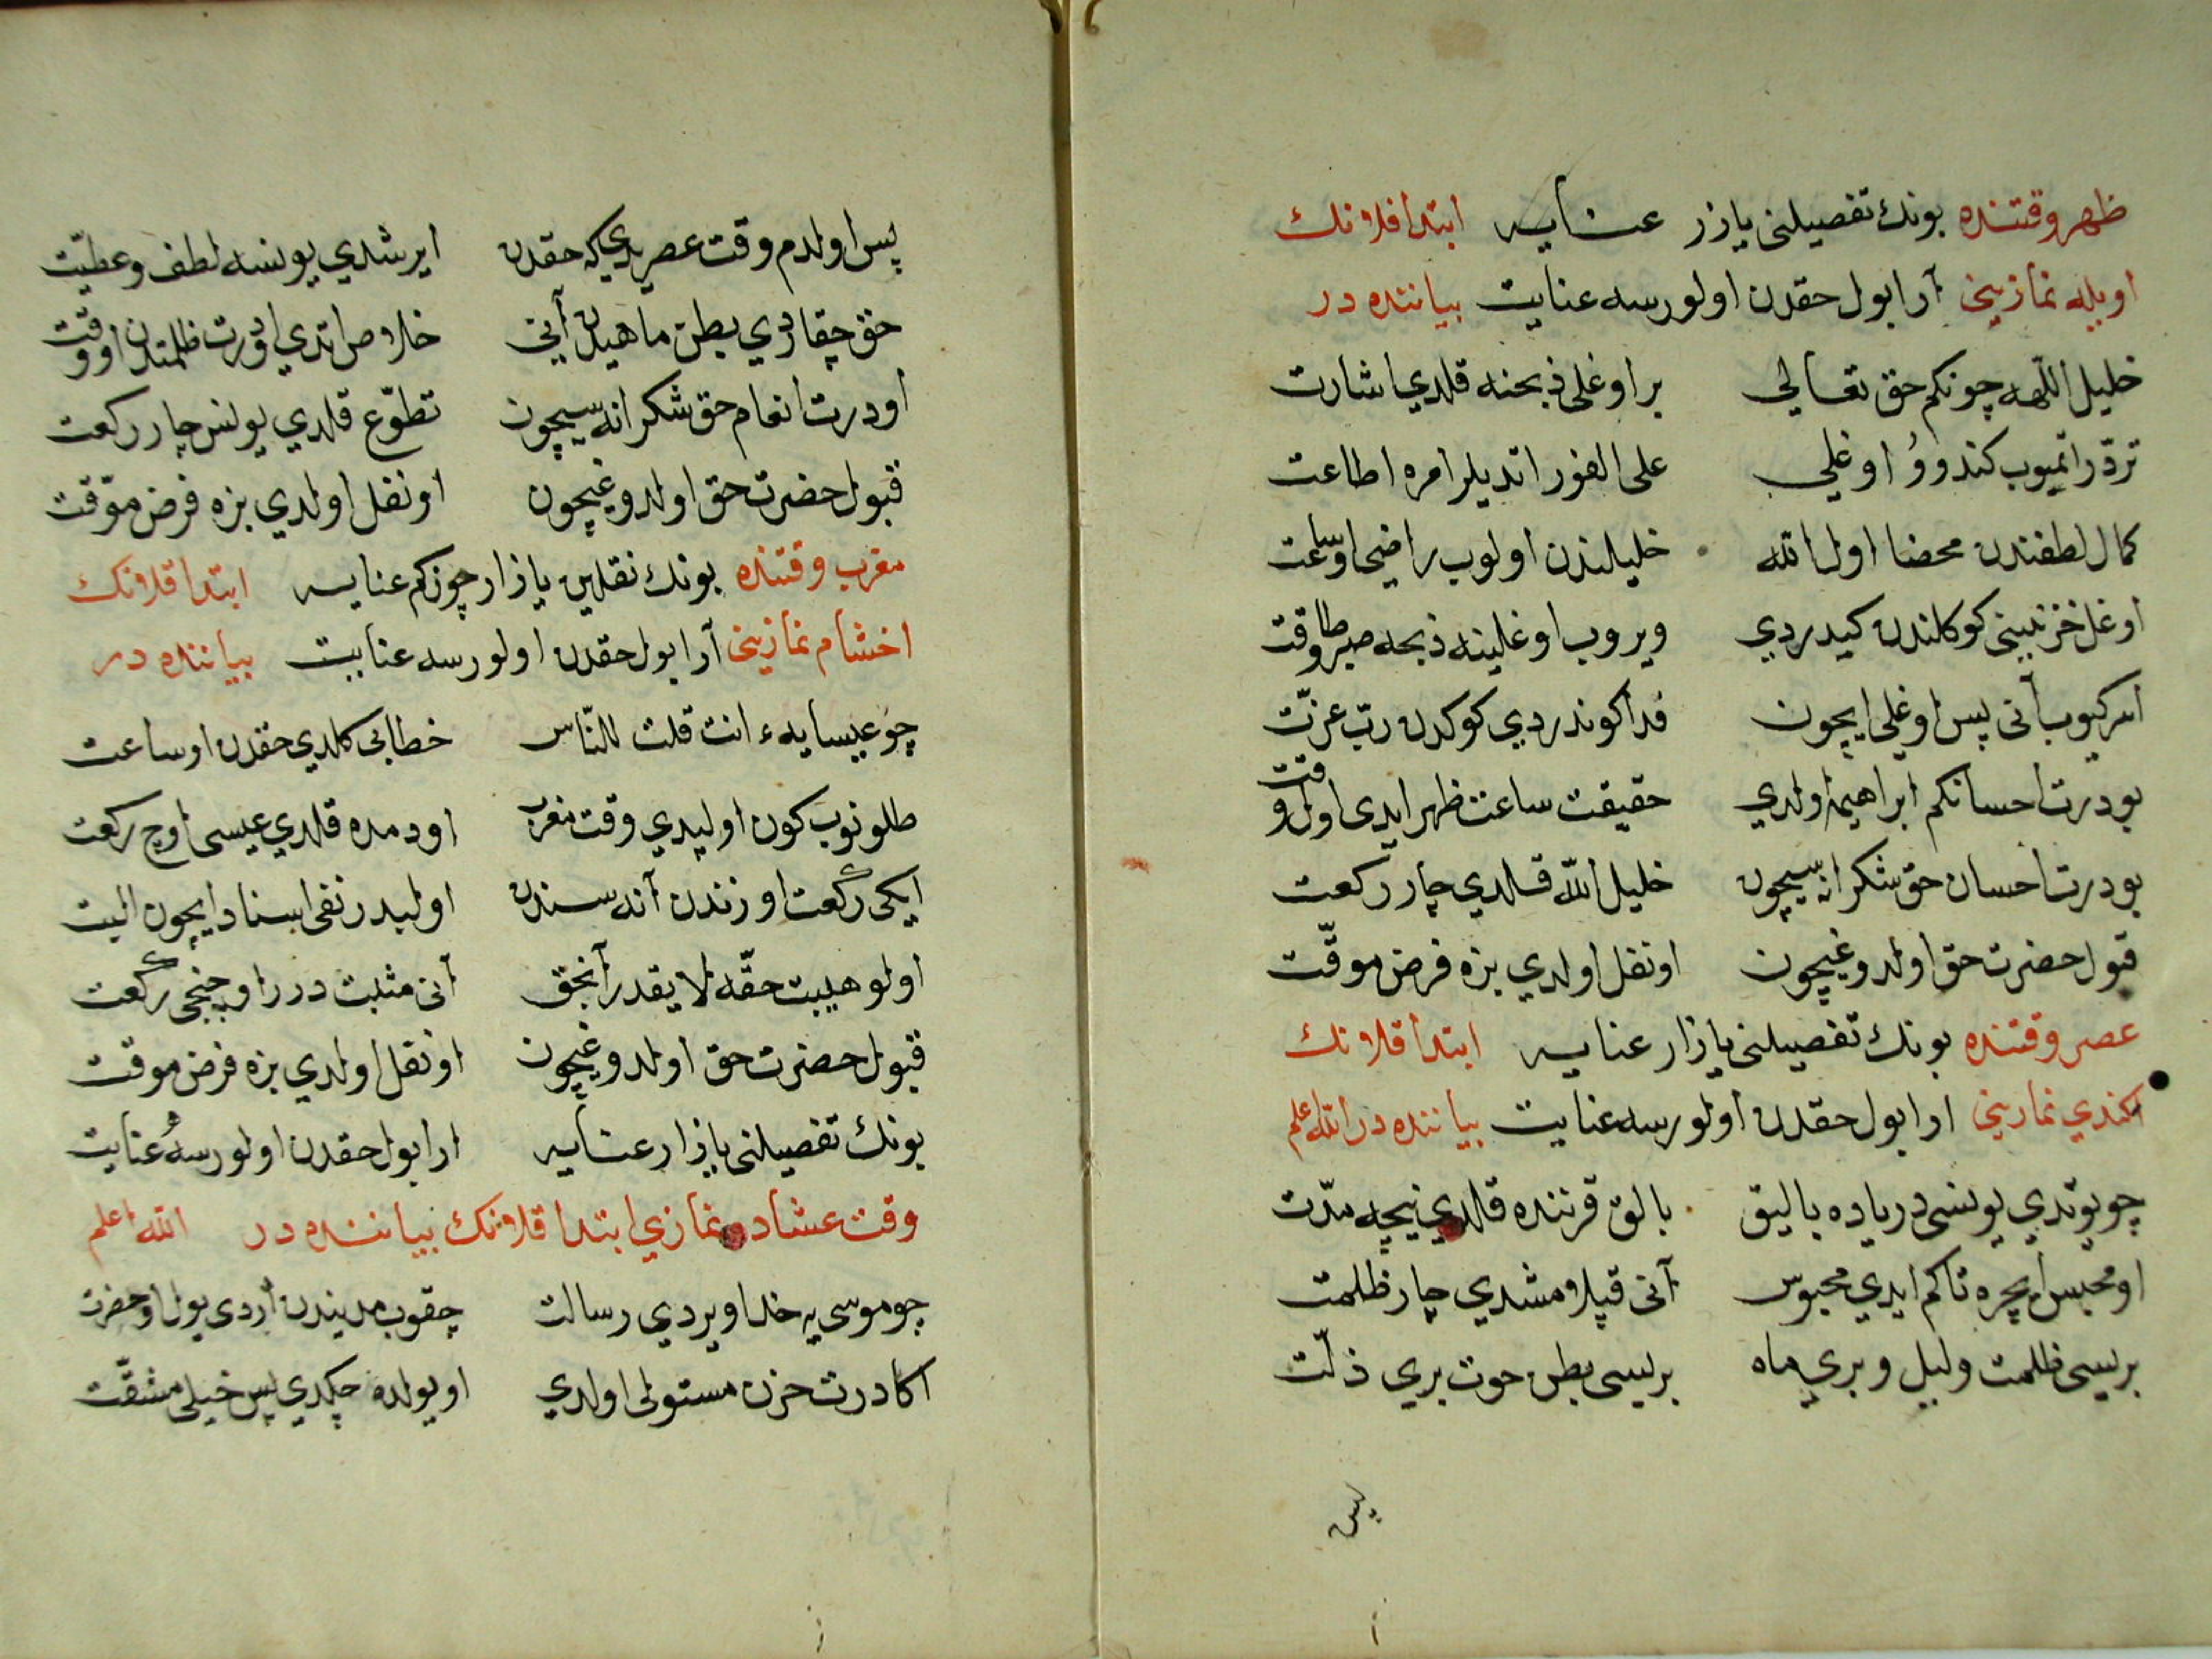 ظهر وقتنده بونك تفصيلنى يازر عنايه ابتدا قلانك
اويله نمازينى آرابول حقدن اولورسه عنايت بياننده در
خليل اللهه چونكم حق تعالى براوغلى ذبحنه قلدي اشارت
تردّر اتميوب كندوو اوغلي على الفور اتديلر امره اطاعت
كمال لطفندن محضا اول الله خليلندن اولوب راضى اوساعت
اوغل حزنينى كوكلندن كيدردي ويروب اوغلينه ذبحه صبر وطاقت
اسركيوب آنى پس اوغلى ايچون فدا كوندردي كوكدن ربّ عزّت
بودرت احسانكم ابراهيمه اولدي حقيقت ساعت ظهر ايدى اول وقت
بودرت احسان حق شكرانه سيچون خليل اللّه قلدي چار ركعت
قبول حضرت حق اولدوغيچون اونفل اولدي بزه فرض موقّت
عصر وقتنده بونك تفصيلنى يازار عنايه ابتدا قلانك
اكندي نمازينى ارابول حقدن اولورسه عنايت بياننده در الله اعلم
چو يوتدي يونسى درياده باليق بالق قرننده قلدي نيچه مدّت
اومحبس ايچره تاكم ايدي محبوس آنى قپلامشدي چار ظلمت
بريسى ظلمت وليل وبري ماه بريسى بطن حوت بري ذلّت
پس
پس اولدم وقت عصريدي كه حقدن ايرشدي يونسه لطف وعطيّت
حق چقاردي بطن ماهيدن آنى خلاص اتدي اودرت ظلمتدن اووقت
اودرت انعام حق شكرانه سيچون تطوّع قلدي يونس چار ركعت
قبول حضرت حق اولدوغيچون اونفل اولدي بزه فرض موّقت
مغرب وقتنده بونك نقلين يازار چونكم عنايه ابتدا قلانك
اخشام نمازينى آرابول حقدن اولورسه عنايت بياننده در
چو عيسايه ء انت قلت للنّاس خطابى كلدي حقدن اوساعت
طلونوب كون اوليدي وقت مغرب اودمده قلدي عيسى اوچ ركعت
ايكى ركعت اوزندن آنه سندن اوليدر نفى اسناد ايچون اليت
اولوهيبت حقّه لايقدر آنجق آنى مثبت درر اوچنجى ركعت
قبول حضرت حق اولدوغيچون اونفل اولدي بزه فرض موقت
بونك تفصيلنى يازار عنايه ارابول حقدن اولورسه عنايت
وقت عشاده نمازي ابتدا قلانك بياننده در الله اعلم
چو موسى يه خدا ويردي رسالت چقوب مديندن اردى يول اوحضرت
اكا درت حزن مستولى اولدي اويولده چكدي پس خيلى مشقّت